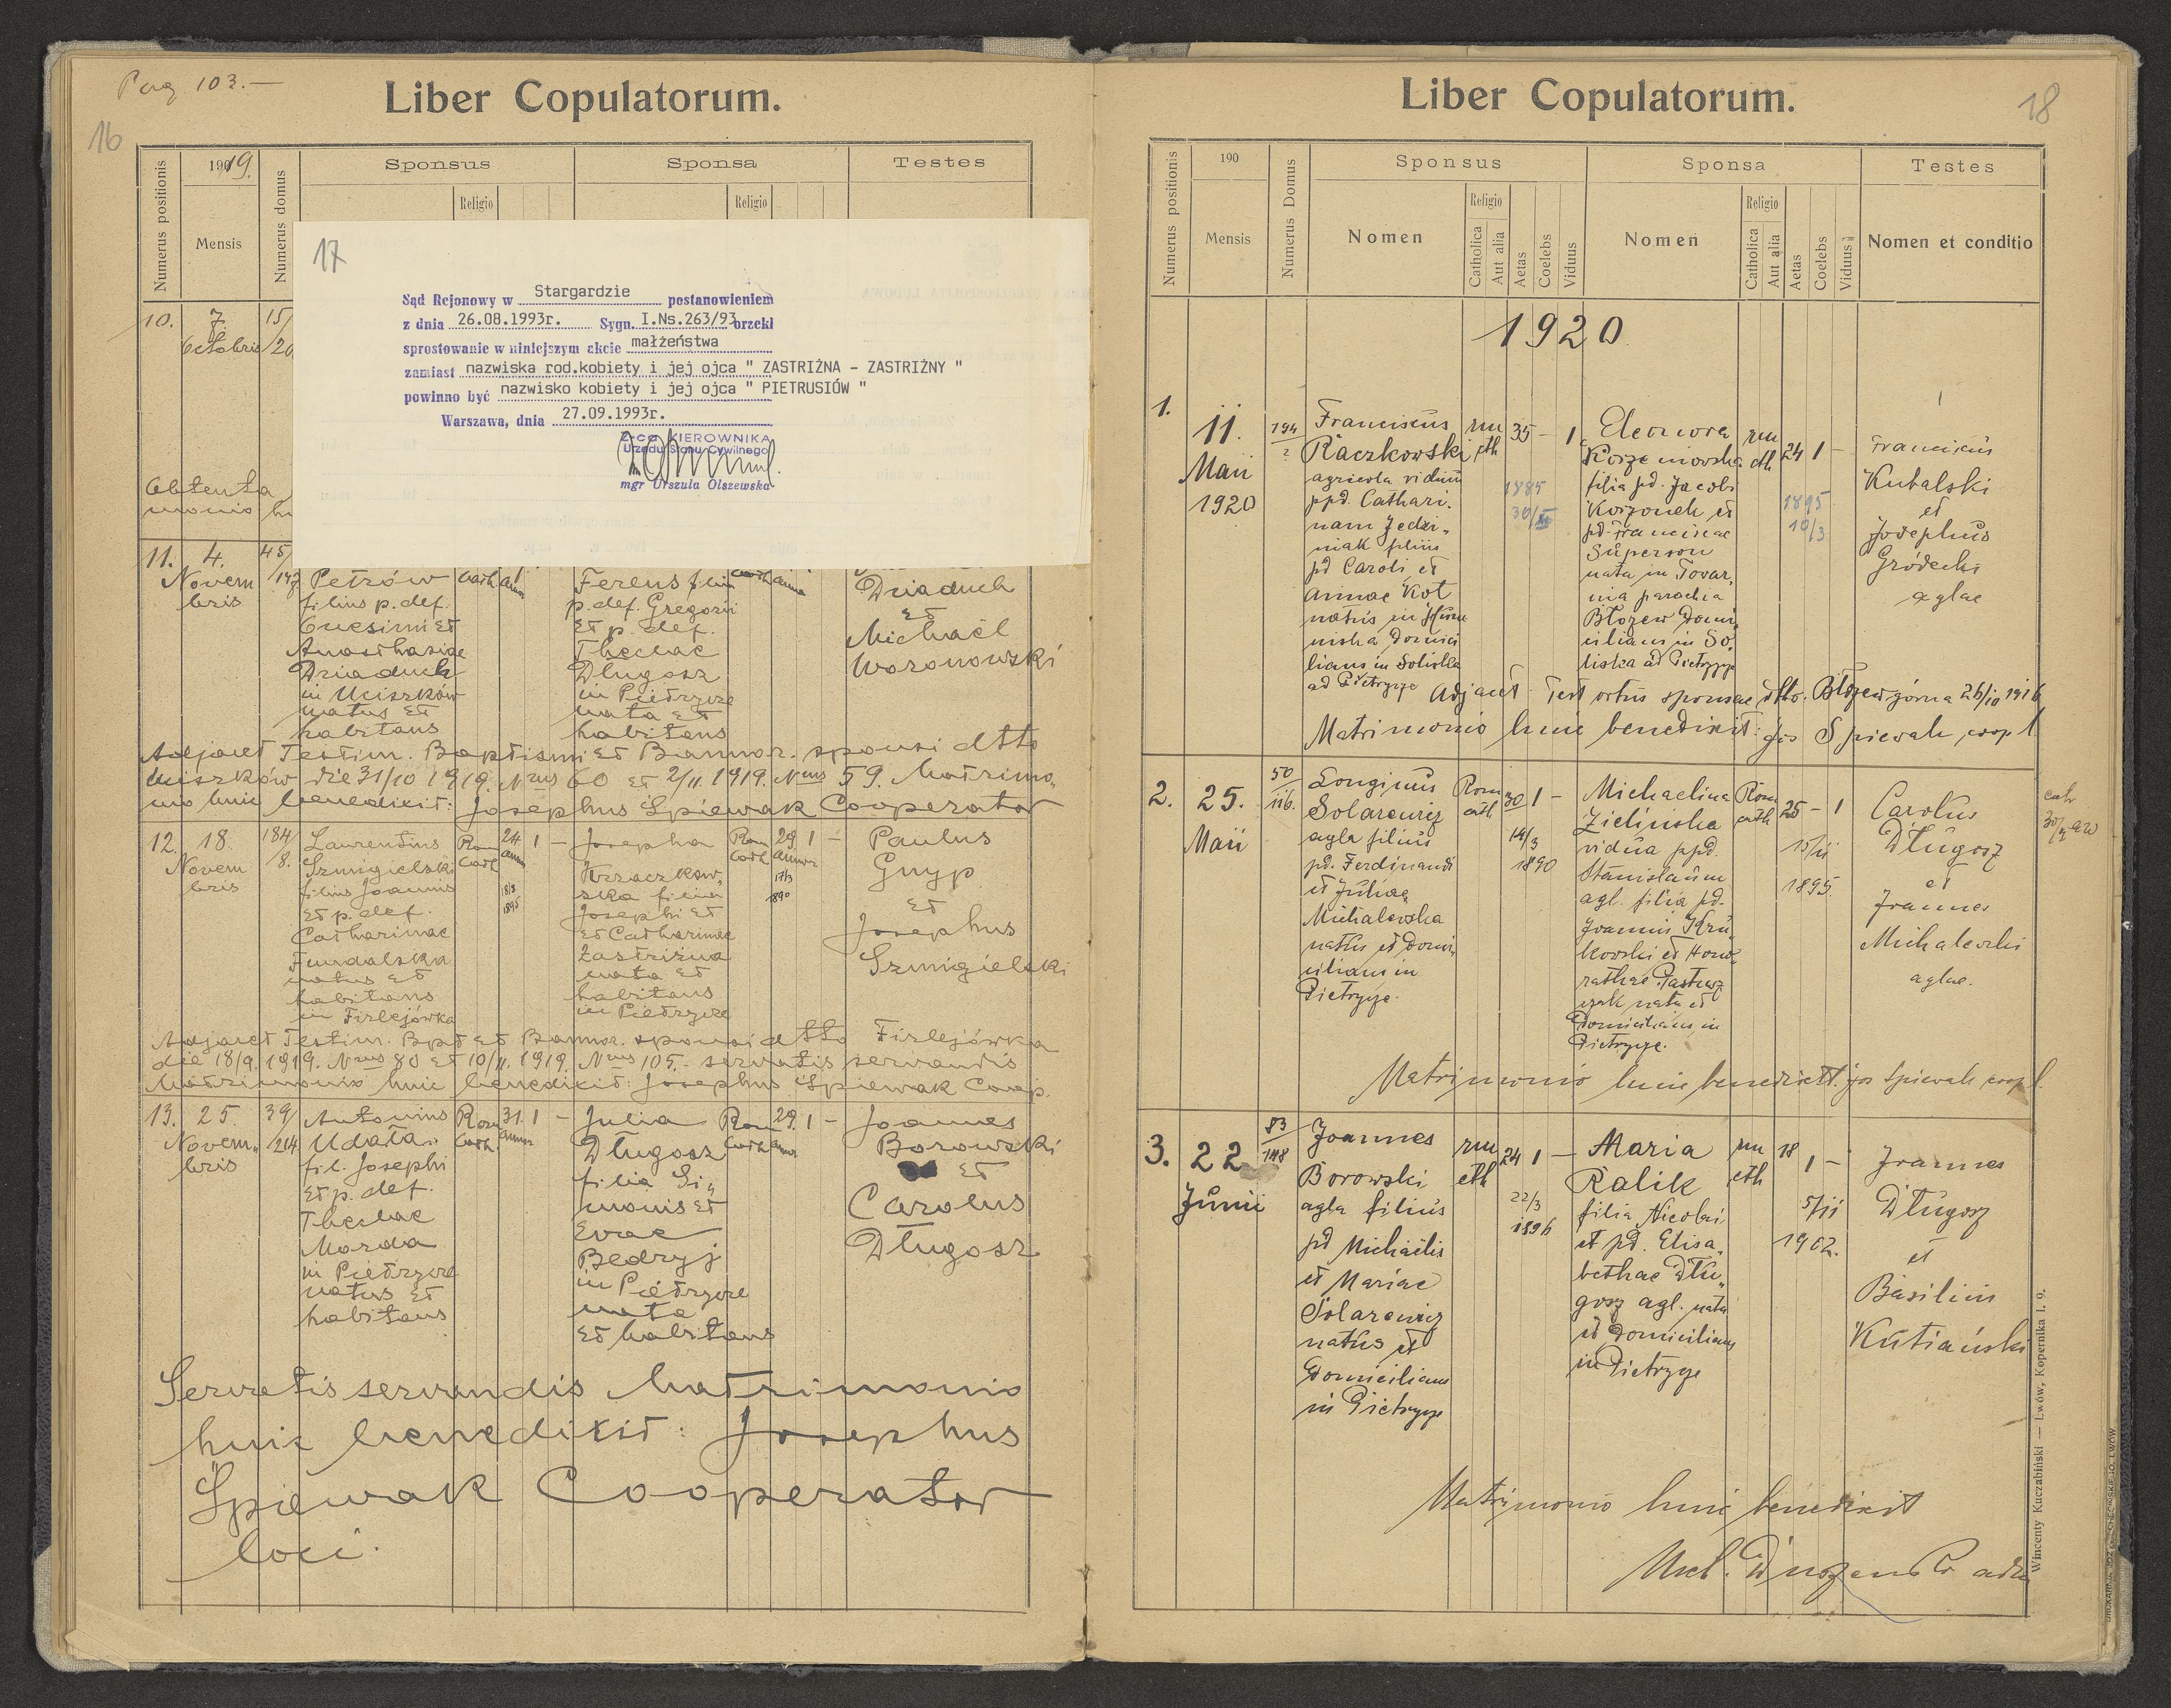 Pag. 103.—
16
Liber Copulatorum.
Numerus positionis
19019.
Mensis
Numerus domus
Sponsus
Religio
Sponsa
Religio
Testes
17
Sąd Rejonowy w Stargardzie postanowieniem
z dnia 26.08.1993r. Sygn. I.Ns.263/93 orzekł
sprostowanie w niniejszym akcie małżeństwa
zamiast nazwiska rod.kobiety i jej ojca " ZASTRIŻNA - ZASTRIŻNY "
powinno być nazwisko kobiety i jej ojca " PIETRUSIÓW "
Warszawa, dnia 27.09.1993r.
Z-ca KIEROWNIKA
Urzędu Stanu Cywilnego
mgr Urszula Olszewska
10.
7.
Octobris
15/
20
Obtenta
11.
4.
Novem
bris
45/
147
Petrów
filius p. def.
Onesimi et
Anasthasiae
Dziaduch
in Uciszków
natus et
habitans
Ferens filia
p. def. Gregorii
et p. def.
Theclae
Długosz
in Pietrycze
nata et
habitans
Dziaduch
et
Michaël
Woronowski
Adjacet Testim. Baptismi et Bannor. sponsi dtto
Uciszków die 31/10 1919. Nrus 60 et 2/11. 1919. Nrus 59. Matrimo„
nio huic benedixit: Josephus Śpiewak Cooperator
12.
18.
Novem
bris
184/
8.
Laurentius
Szmigielski
filius Joannis
et p. def.
Catharinae
Fundalska
natus et
habitans
in Firlejówka
Rom
cath.
24
annor
8/8
1895
1 —
Josepha
ska filia
Josephi et
et Catharinae
Zastriżna
nata et
habitans
in Pietrycze
Rom
cath.
29
annor
17/3
1890
1 —
Paulus
Gnyp
et
Josephus
Szmigielski
Adjacet Testim. Bpt et Bannor. sponsi dtto Firlejówka
die 18/9. 1919. Nrus 80 et 10/11. 1919. Nrus 105.- servatis servandis
Matrimonio huic benedixit: Josephus Śpiewak Coop.
13.
25.
Novem„
bris
39/
214
Antonius
Udała..
fil. Josephi
et p. def.
Theclae
Marda
in Pietrycze
natus et
habitans
Rom
cath.
31.
annor
1 —
Julia
Długosz
filia Si„
monis et
Evae
Bedryj
in Pietrycze
nata
et habitans
Rom
cath
29.
annor
1 —
Joannes
Borowski
et
Carolus
Długosz
Servatis servandis Matrimonio
huic benedixit: Josephus
Śpiewak Cooperator
loci.
Liber Copulatorum.
18
Numerus positionis
190
Mensis
Numerus Domus
Sponsus
Nomen
Religio
Catholica
Aut alia
Aetas
Coelebs
Viduus
Sponsa
Nomen
Religio
Catholica
Aut alia
Aetas
Coelebs
Viduus
Testes
Nomen et conditio
1920
1.
11.
Maii
1920
194
2
Franciscus
Raczkowski
agricola viduus
ppd. Cathari„
nam Jedzi„
niak filius
pd Caroli et
Annae Kot
natus in
niska domici
lians in Soliska
ad Pietrycze
rm
cth
35 — 1
1885
30/
Eleonora
Korzeniowska
filia pd. Jacobi
et
pd. Franciscae
Superson
nata in Tovar„
nia parochia
Błożew domi„
cilians in So„
liska ad Pietrycze
rm
cth
24 1 —
1895
10/3
Franciscus
Kubalski
et
Josephus
Gródecki
aglae
Adjacet Test ortus sponsae dtto. Błożew górna 26/10 1916
Matrimonio huic benedixit: Jos Spiewak coop l.
2.
25.
Maii
50
116.
Longinus
Solarewicz
agla filius
pd. Ferdinandi
et Juliae
Michalewska
natus et domi„
cilians in
Pietrycze.
Rom
cath
30 1 —
14/3
1890
Michaelina
Zielińska
vidua ppd.
Stanislaum
agl. filia pd.
Joannis Kru„
kowski et Hono„
rathae
nata et
Domicilians in
Pietrycze.
Rom
cath
25 — 1
15/11
1895.
Carolus
Długosz
et
Joannes
Michalewski
aglae.
Matrimonio huic benedixit. Jos Spiewak coop l.
3.
22
Junii
83
148
Joannes
Borowski
agla filius
pd Michaëlis
et Mariae
Solarewicz
natus et
Domicilians
in Pietrycze
rm
cth
24 1 —
22/3
1896
Maria
Ralik
filia Nicolai
et pd. Elisa„
bethae Dłu„
gosz agl. nata
et Domicilians
in Pietrycze
rm
cth
18 1 —
5/11
1902.
Joannes
Długosz
et
Basilius
Kutiański
Matrimonio huic benedixit
Wincenty Kuczabiński — Lwów, Kopernika l. 9.